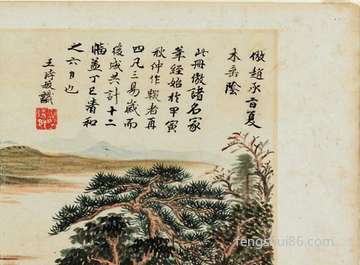 倣趙承旨夏
木垂陰
此冊倣諸名家
筆經始於甲寅
秋仲作輟者再
四凡三易歲而
後成共計十二
幅蓋丁巳清和
之六日也
王時敏識
fengshui86.com